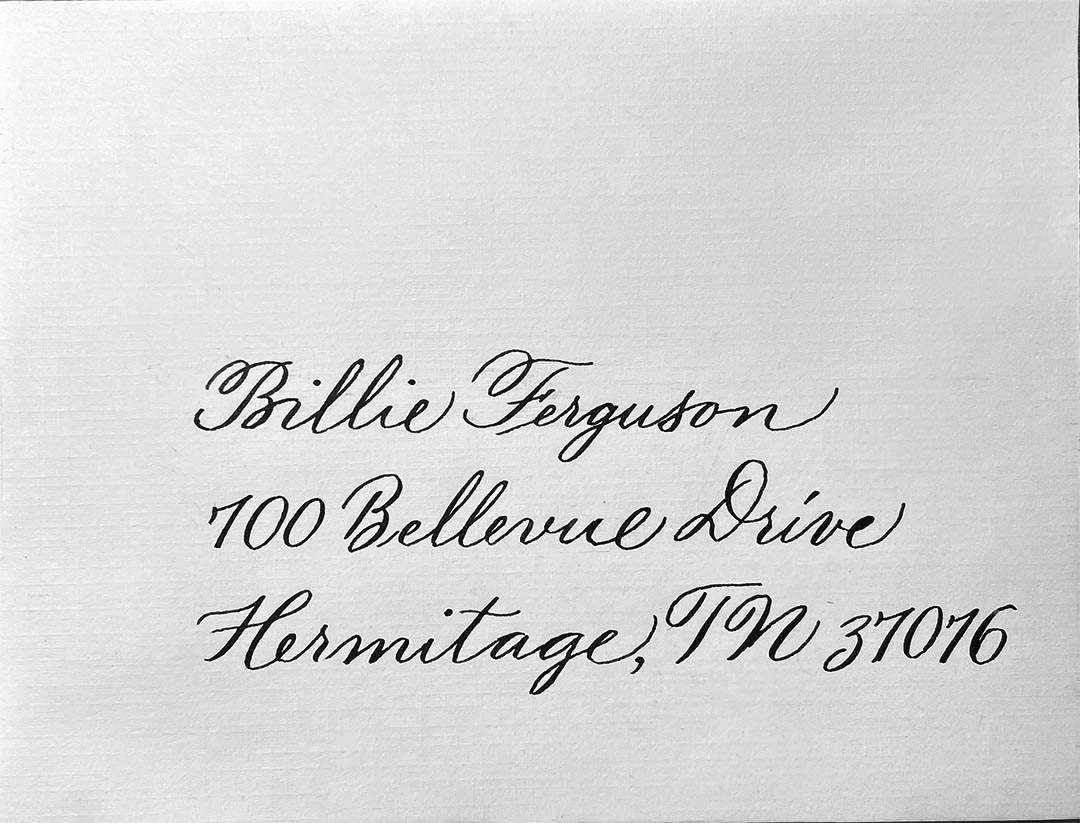 Billie Ferguson
700 Bellevue Drive
Hermitage, TN 37076